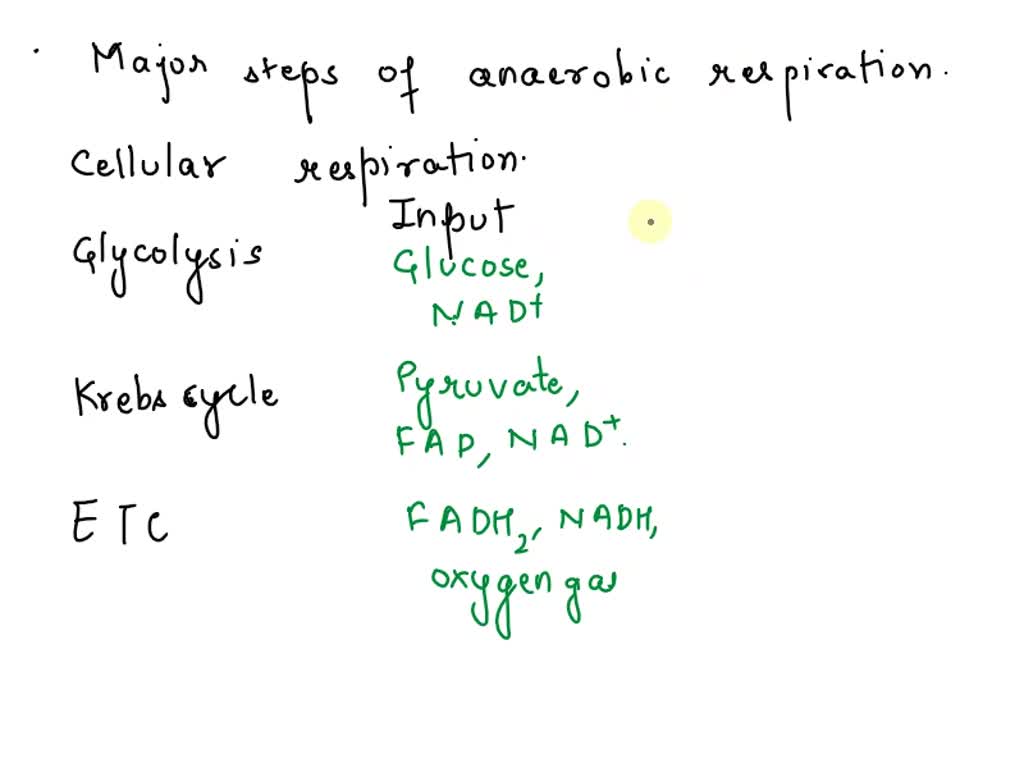 Major steps of anaerobic respiration.
Cellular respiration.
Input
Glycolysis Glucose,
NAD+
Krebs cycle Pyruvate,
FAD, NAD+.
ETC FADH2, NADH,
oxygen gas